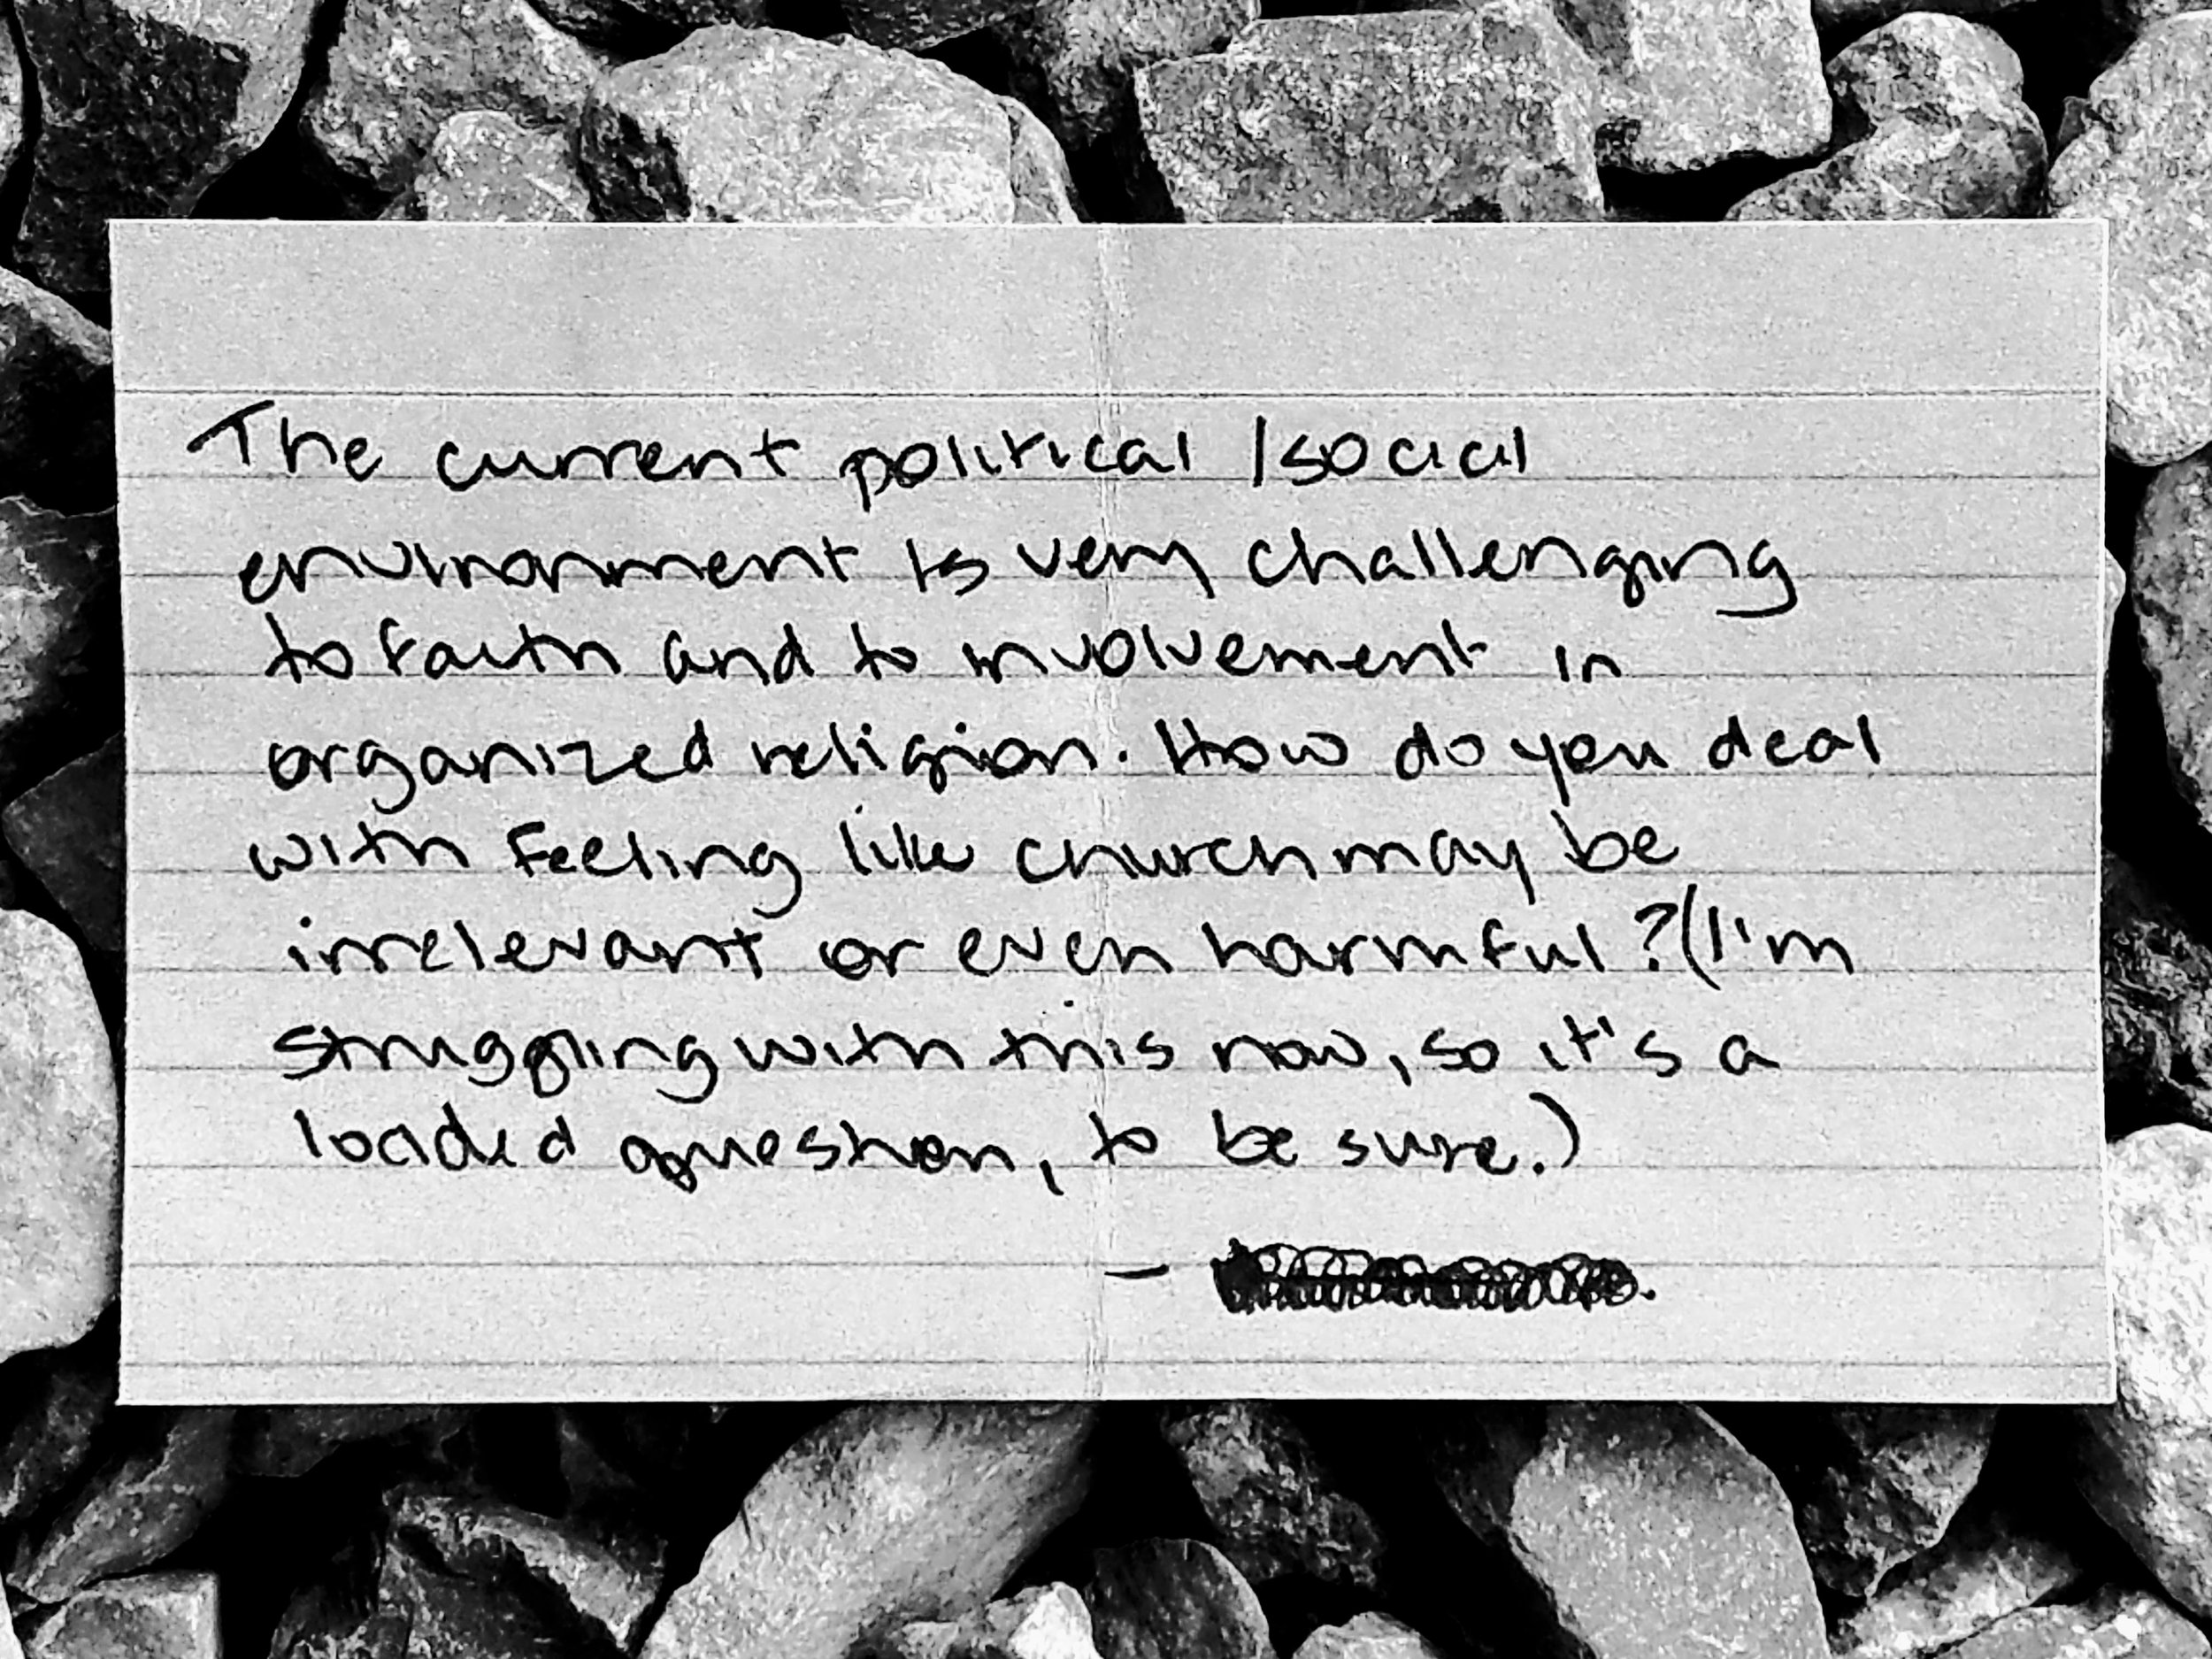 The current political /social
environment is very challenging
to faith and to involvement in
organized religion. How do you deal
with feeling like church may be
irrelevant or even harmful? (I'm
struggling with this now, so it's a
loaded question, to be sure.)
-